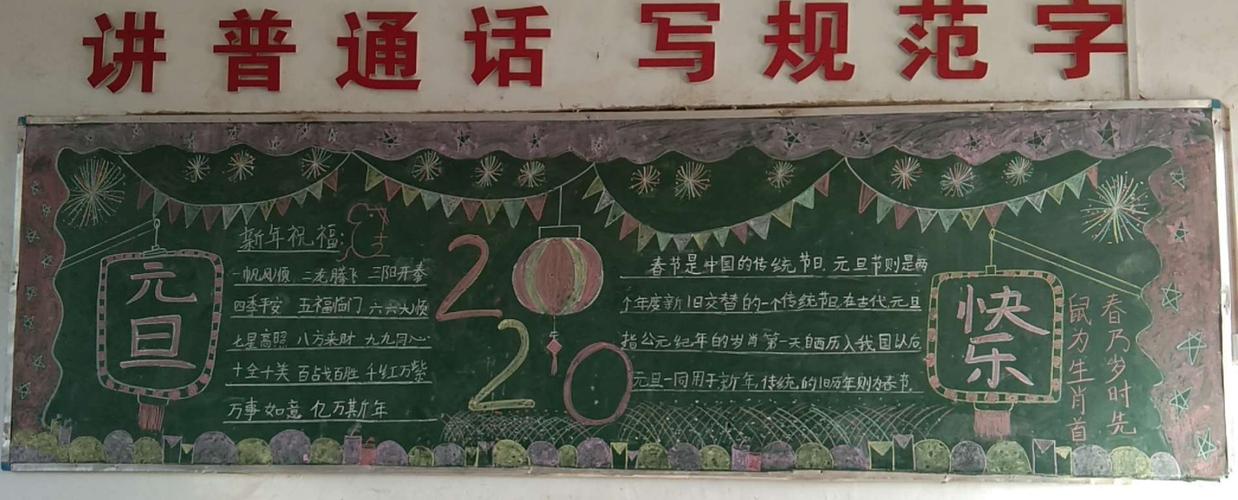 讲普通话 写规范字
元旦
新年祝福:
一帆风顺 二龙腾飞 三阳开泰
四季平安 五福临门 六六大顺
七星高照 八方来财 九九同心
十全十美 百战百胜 千红万紫
万事如意 亿万斯年
2020
春节是中国的传统节日,元旦节则是两
个年度新旧交替的一个传统节日,在古代元旦
指公元纪年的岁首第一天,自西历入我国以后
元旦一同用于新年,传统的旧历年则为春节.
快乐
春乃岁时先
鼠为生肖首